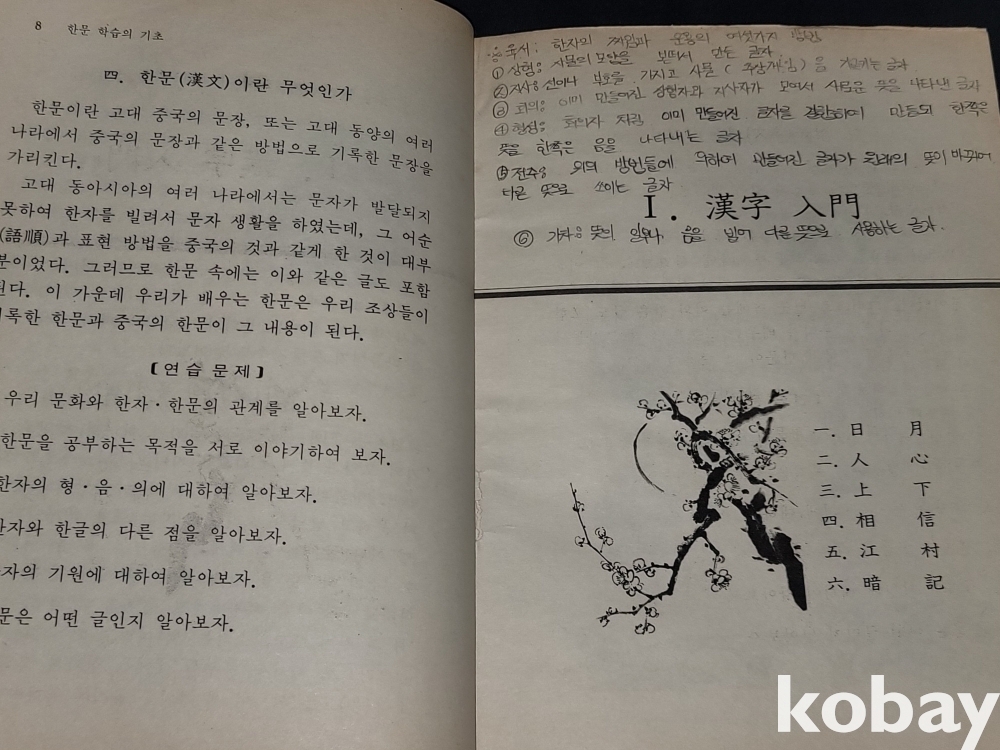 8 한문 학습의 기초
四. 한문(漢文)이란 무엇인가
한문이란 고대 중국의 문장, 또는 고대 동양의 여러
나라에서 중국의 문장과 같은 방법으로 기록한 문장을
가리킨다.
고대 동아시아의 여러 나라에서는 문자가 발달되지
못하여 한자를 빌려서 문자 생활을 하였는데, 그 어순
(語順)과 표현 방법을 중국의 것과 같게 한 것이 대부
분이었다. 그러므로 한문 속에는 이와 같은 글도 포함
된다. 이 가운데 우리가 배우는 한문은 우리 조상들이
기록한 한문과 중국의 한문이 그 내용이 된다.
〔연습 문제〕
우리 문화와 한자·한문의 관계를 알아보자.
한문을 공부하는 목적을 서로 이야기하여 보자.
한자의 형·음·의에 대하여 알아보자.
한자와 한글의 다른 점을 알아보자.
자의 기원에 대하여 알아보자.
문은 어떤 글인지 알아보자.
한자의 짜임과 운용의 여섯가지 방법
① 상형: 사물의 모양을 본떠서 만든 글자
② 지사: 선이나 부호를 가지고 사물( )을 가리키는 글자
③ 회의: 이미 만들어진 상형자와 지사자가 모여서 새로운 뜻을 나타낸 글자
④ 형성: 회의자 처럼 이미 만들어진 글자을 결합하여 만들되 한쪽은
뜻을 한쪽은 음을 나타내는 글자
⑤ 전주: 위의 방법들에 의하여 만들어진 글자가 원래의 뜻이 바뀌어
다른 뜻으로 쓰이는 글자
Ⅰ. 漢字 入門
⑥ 가차: 뜻이 음을 빌어 다른 뜻으로 사용하는 글자.
一. 日 月
二. 人 心
三. 上 下
四. 相 信
五. 江 村
六. 暗 記
kobay